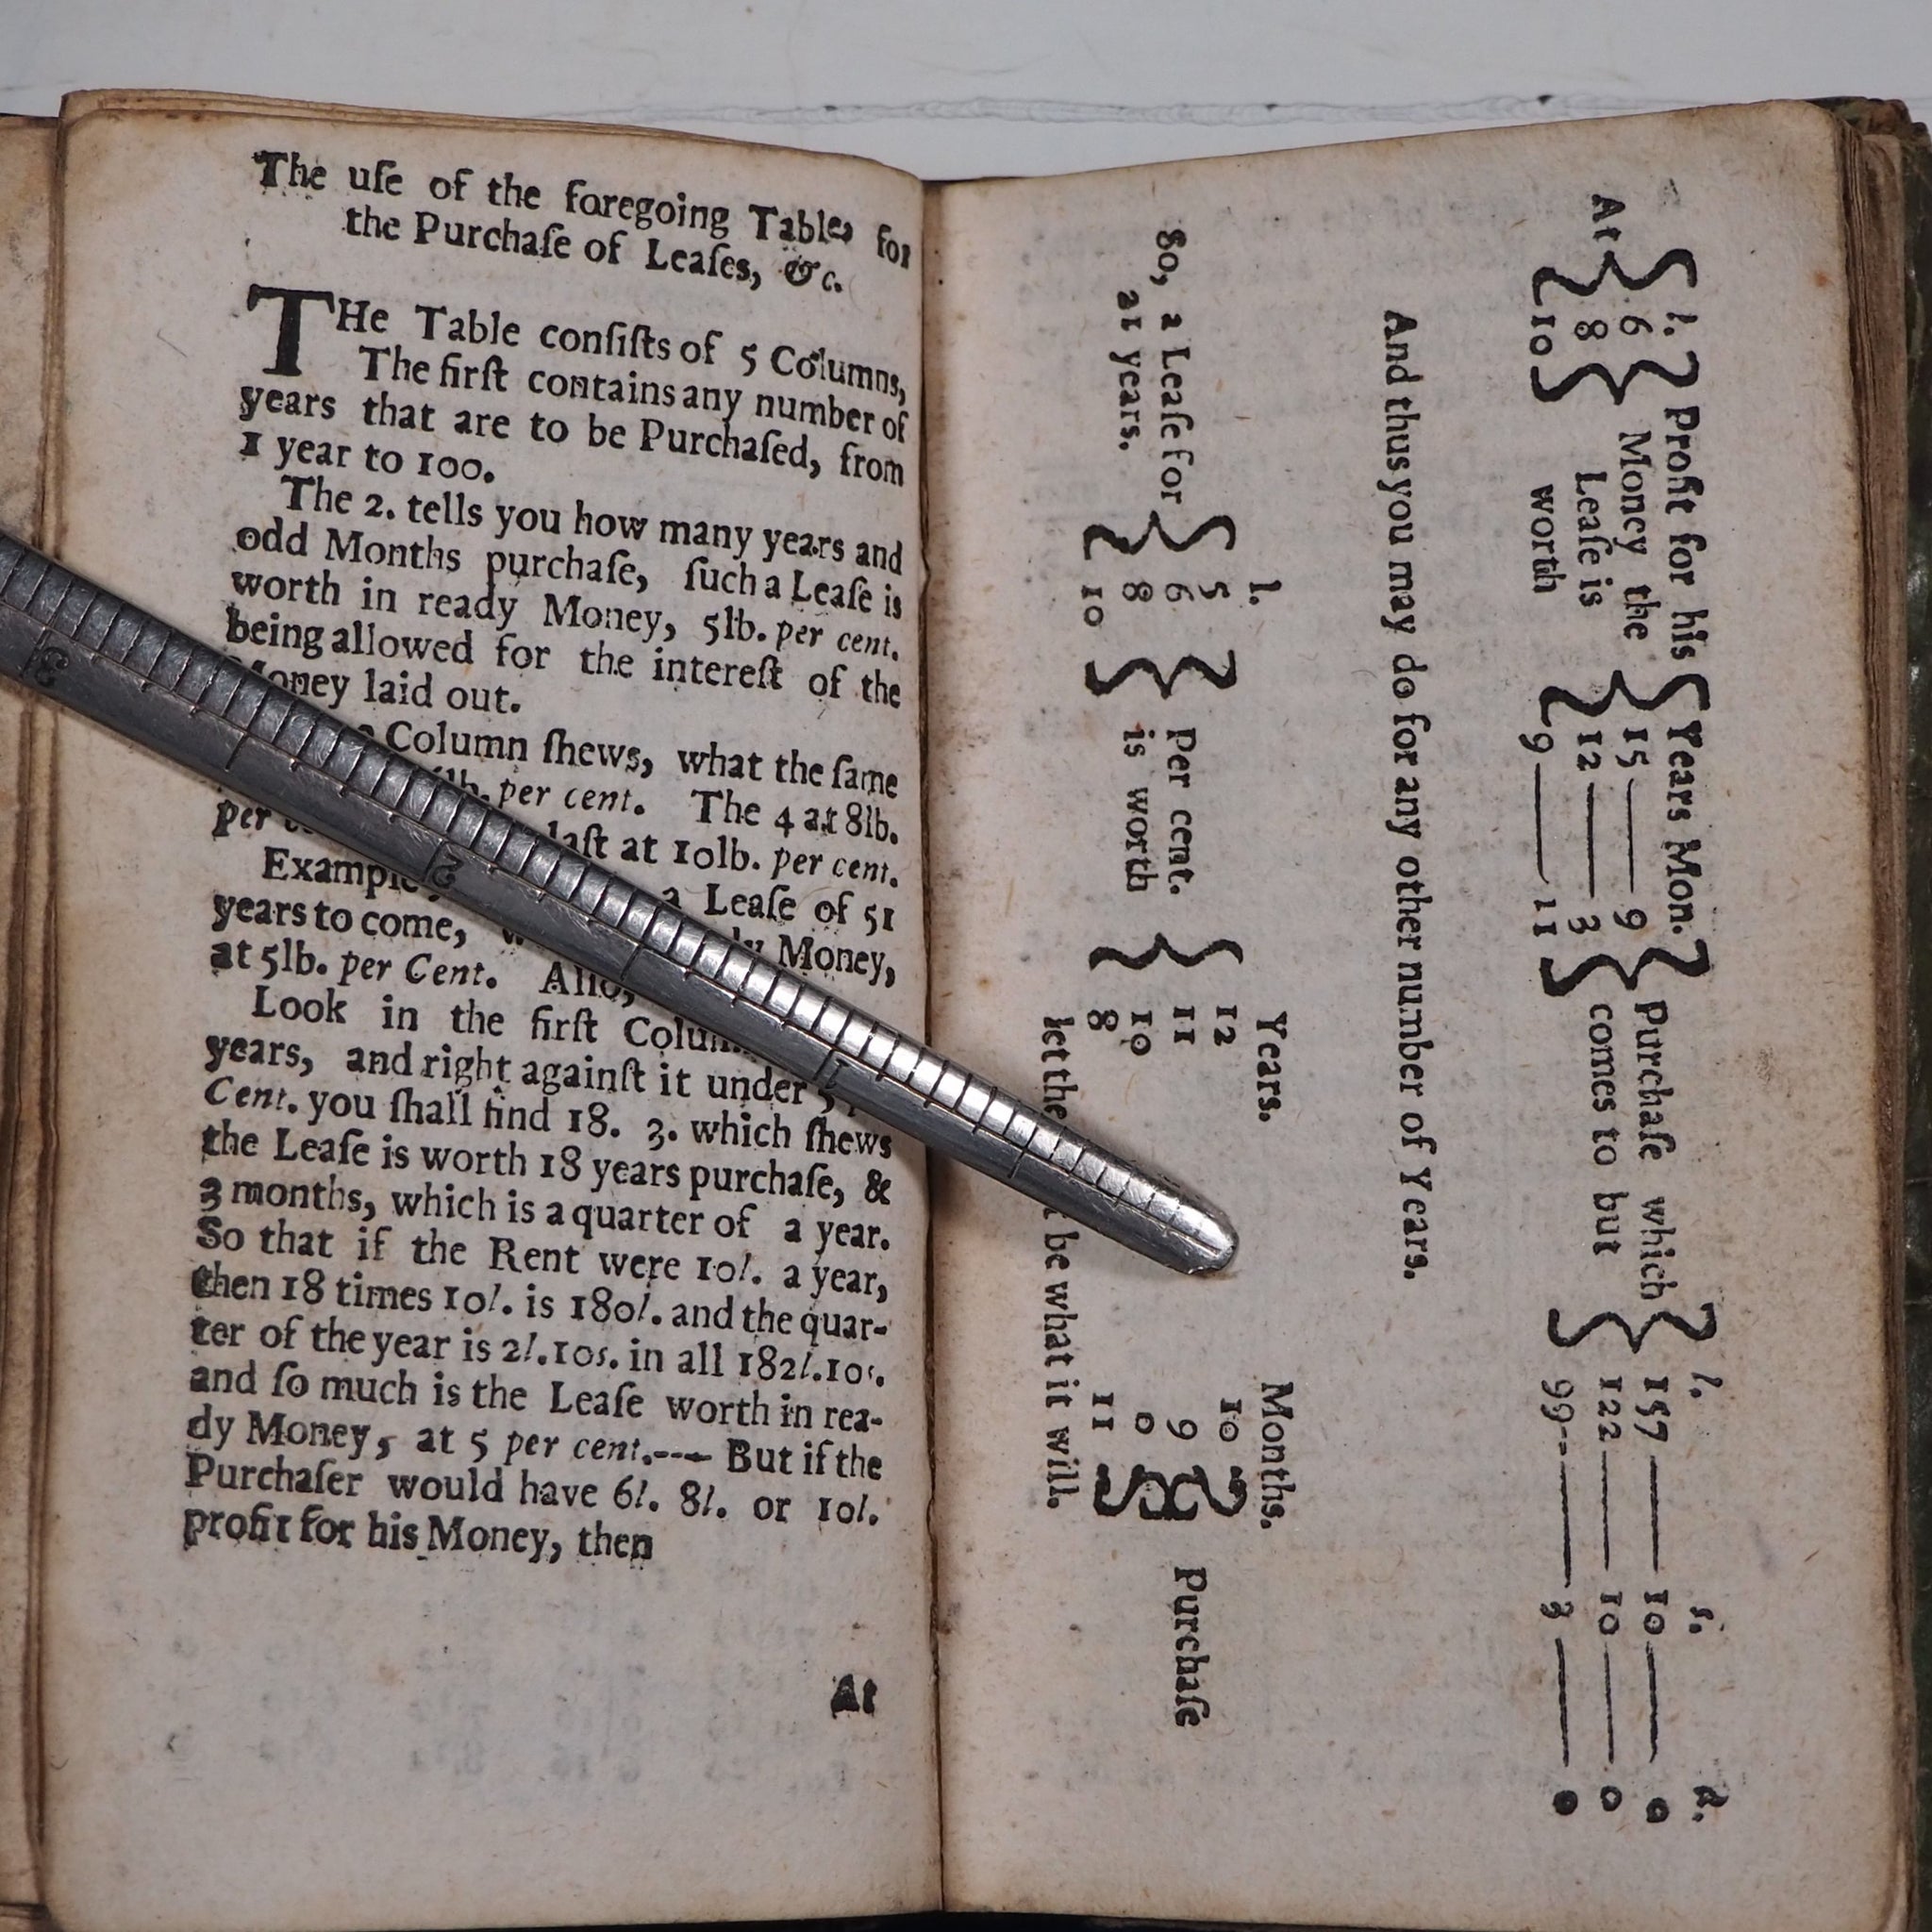 The uſe of the foregoing Tables for
the Purchaſe of Leaſes, &c.
THe Table conſiſts of 5 Columns,
The firſt contains any number of
years that are to be Purchaſed, from
1 year to 100.
The 2. tells you how many years and
odd Months purchaſe, ſuch a Leaſe is
worth in ready Money, 5lb. per cent.
being allowed for the intereſt of the
Money laid out.
Column ſhews, what the ſame
lb. per cent. The 4 at 8lb.
per laſt at 10lb. per cent.
Example a Leaſe of 51
years to come, Money,
at 5lb. per Cent. Alſo,
Look in the firſt
years, and right againſt it under 5
Cent. you ſhall find 18. 3. which ſhews
the Leaſe is worth 18 years purchaſe, &
3 months, which is a quarter of a year.
So that if the Rent were 10l. a year,
then 18 times 10l. is 180l. and the quar-
ter of the year is 2l. 10s. in all 182l. 10s.
and ſo much is the Leaſe worth in rea-
dy Money, at 5 per cent.---- But if the
Purchaſer would have 6l. 8l. or 10l.
profit for his Money, then
At
l. Years Mon. l. s. d.
At { 6 } Profit for his Money the Leaſe is worth { 15 —— 9 } Purchaſe which comes to but { 157 —— 10 —— 0
8 12 —— 3 122 —— 10 —— 0
10 9 —— 11 99 —— 3 —— 0
And thus you may do for any other number of Years.
l. Years. Months.
So, a Leaſe for 21 years. { 5 } per cent. is worth { 12 10 } Purchaſe
6 11 9
8 10 0
10 8 11
let the be what it will.